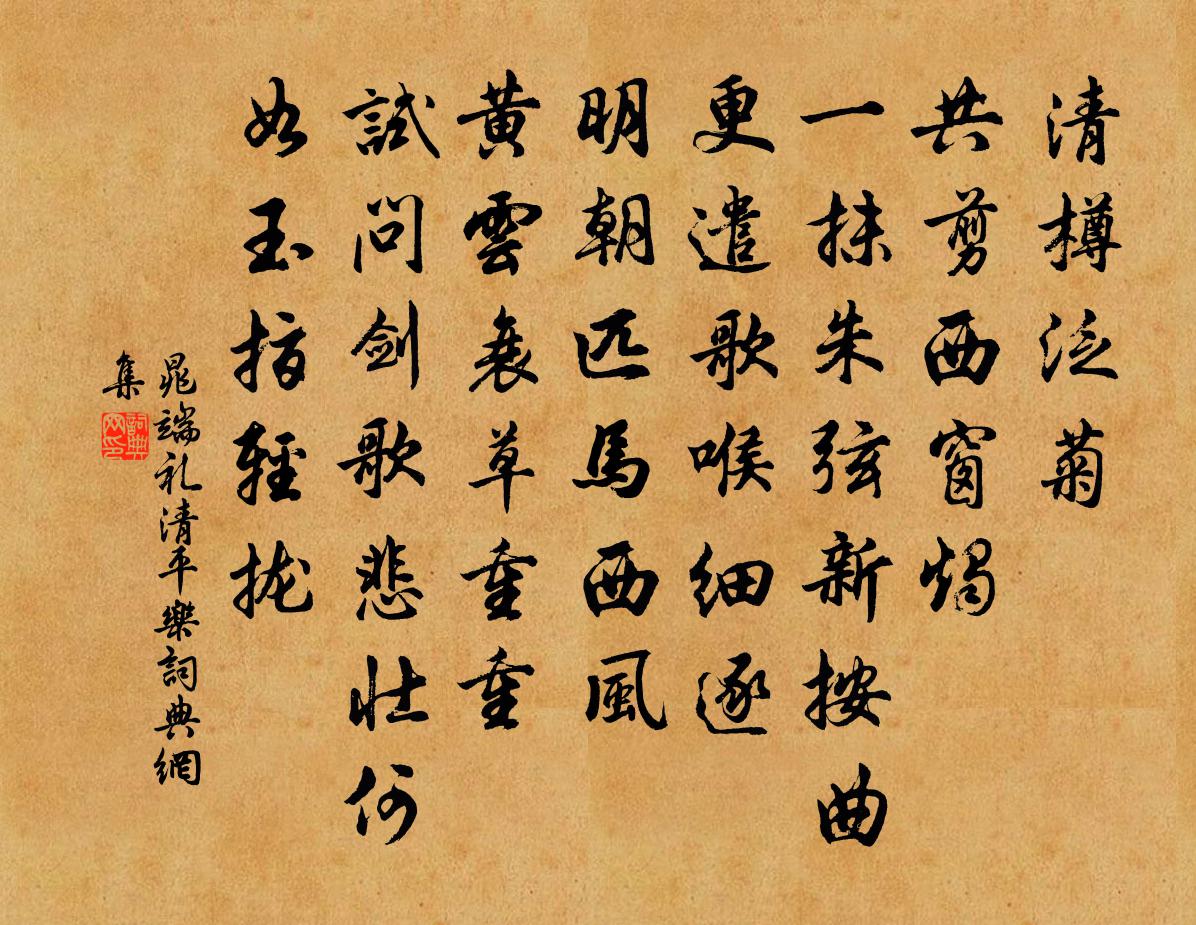 清樽泛菊
共剪西窗燭
一抹朱弦新按曲
更遣歌喉細逐
明朝匹馬西風
黃雲衰草重重
試問劍歌悲壯何
如玉指輕拢
晁端礼清平樂詞典網
集
詞典
网印